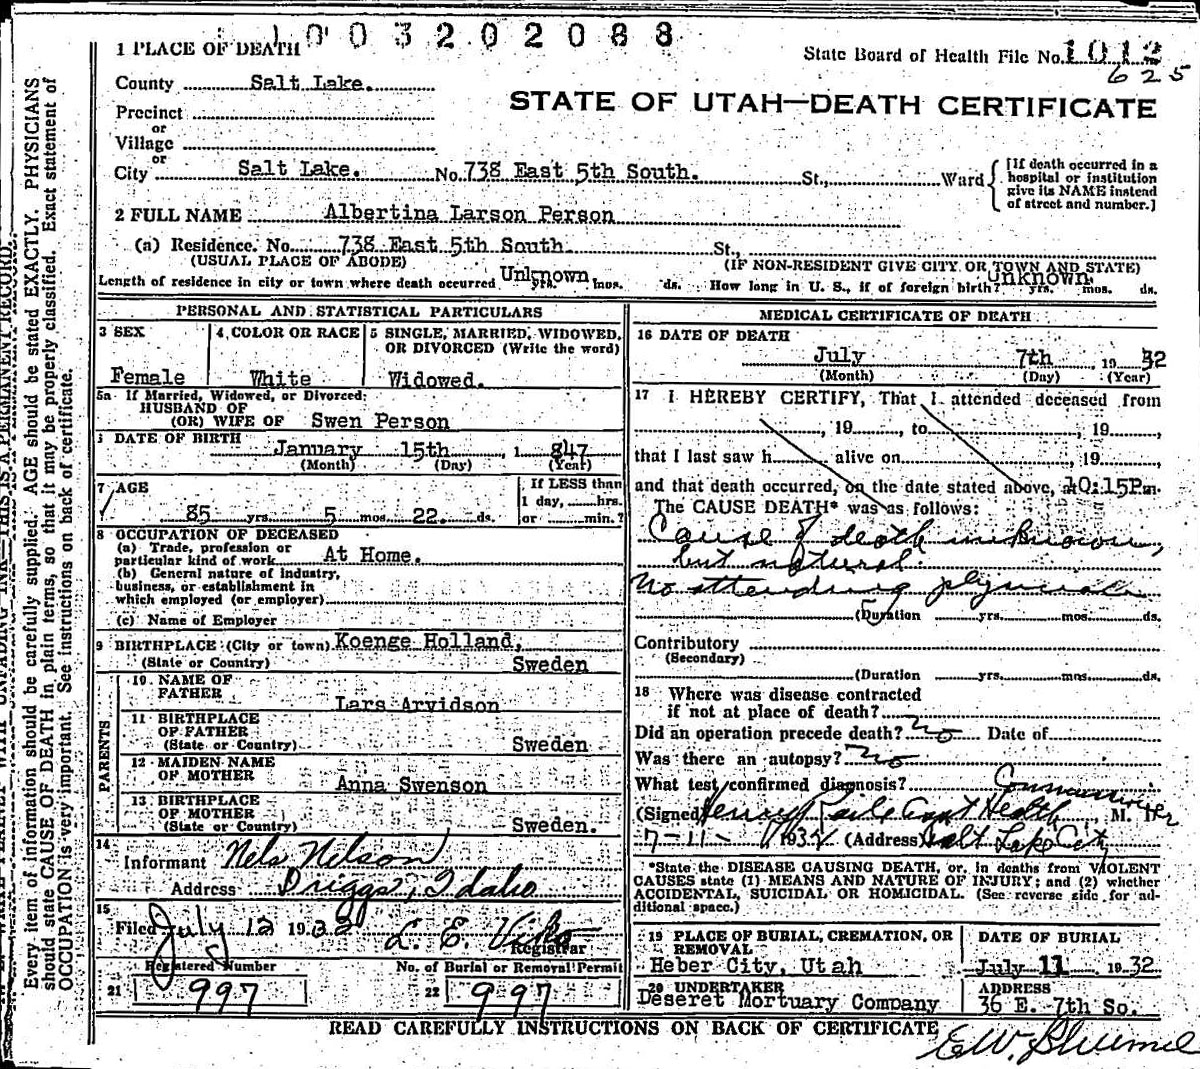 1003202088
1 PLACE OF DEATH
State Board of Health File No. 1012
625
County Salt Lake.
STATE OF UTAH—DEATH CERTIFICATE
Precinct
or
Village
or
City Salt Lake. No. 738 East 5th South. St., Ward
[If death occurred in a
hospital or institution
give its NAME instead
of street and number.]
2 FULL NAME Albertina Larson Person
(a) Residence. No. 738 East 5th South St.,
(USUAL PLACE OF ABODE) (IF NON-RESIDENT GIVE CITY OR TOWN AND STATE)
Length of residence in city or town where death occurred Unknown. yrs. mos. ds. How long in U. S., if of foreign birth? unknown yrs. mos. ds.
PERSONAL AND STATISTICAL PARTICULARS
3 SEX
Female
4 COLOR OR RACE
White
5 SINGLE, MARRIED, WIDOWED,
OR DIVORCED (Write the word)
Widowed.
5a If Married, Widowed, or Divorced
HUSBAND OF
(OR) WIFE OF Swen Person
DATE OF BIRTH
January 15th, 1 847
(Month) (Day) (Year)
7 AGE
85 yrs. 5 mos. 22. ds.
If LESS than
1 day, hrs.
or min.?
8 OCCUPATION OF DECEASED
(a) Trade, profession or
particular kind of work At Home.
(b) General nature of industry,
business, or establishment in
which employed (or employer)
(c) Name of Employer
9 BIRTHPLACE (City or town) Koenge Holland,
(State or Country) Sweden
PARENTS
10 NAME OF
FATHER Lars Arvidson
11 BIRTHPLACE
OF FATHER
(State or Country) Sweden
12 MAIDEN NAME
OF MOTHER Anna Swenson
13 BIRTHPLACE
OF MOTHER
(State or Country) Sweden.
14
Informant Nels Nelson
Address Driggs, Idaho
15
Filed July 12 1932 L. E.
Registrar
Registered Number
21 997
No. of Burial or Removal Permit
22 997
MEDICAL CERTIFICATE OF DEATH
16 DATE OF DEATH
July 7th, 19 32
(Month) (Day) (Year)
17 I HEREBY CERTIFY, That I attended deceased from
, 19 , to , 19 ,
that I last saw h alive on , 19
and that death occurred, on the date stated above, at 10:15Pm.
The CAUSE DEATH* was as follows:
Cause of death unknown,
but natural.
No attending physician
(Duration yrs. mos. ds.
Contributory
(Secondary)
(Duration yrs. mos. ds.
18 Where was disease contracted
if not at place of death?
Did an operation precede death? no Date of
Was there an autopsy? no
What test confirmed diagnosis?
Commissioner
(Signed) Henry Health, M. D.
7-11- 1932 (Address) Salt Lake City
*State the DISEASE CAUSING DEATH, or, in deaths from VIOLENT
CAUSES state (1) MEANS AND NATURE OF INJURY; and (2) whether
ACCIDENTAL, SUICIDAL OR HOMICIDAL. (See reverse side for ad-
ditional space.)
19 PLACE OF BURIAL, CREMATION, OR
REMOVAL
Heber City, Utah
DATE OF BURIAL
July 11 19 32
20 UNDERTAKER
Deseret Mortuary Company
ADDRESS
36 E. 7th So.
READ CAREFULLY INSTRUCTIONS ON BACK OF CERTIFICATE
E.W.
Every item of information should be carefully supplied. AGE should be stated EXACTLY. PHYSICIANS
should state CAUSE OF DEATH in plain terms, so that it may be properly classified. Exact statement of
OCCUPATION is very important. See instructions on back of certificate.